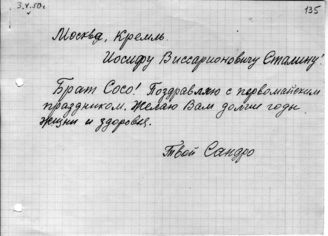 3.V.50г.
135
Москва, Кремль
Иосифу Виссарионовичу Сталину
Брат Сосо! Поздравляю с первомайским
праздником. Желаю Вам долгие годы
жизни и здоровья.
Твой Сандро